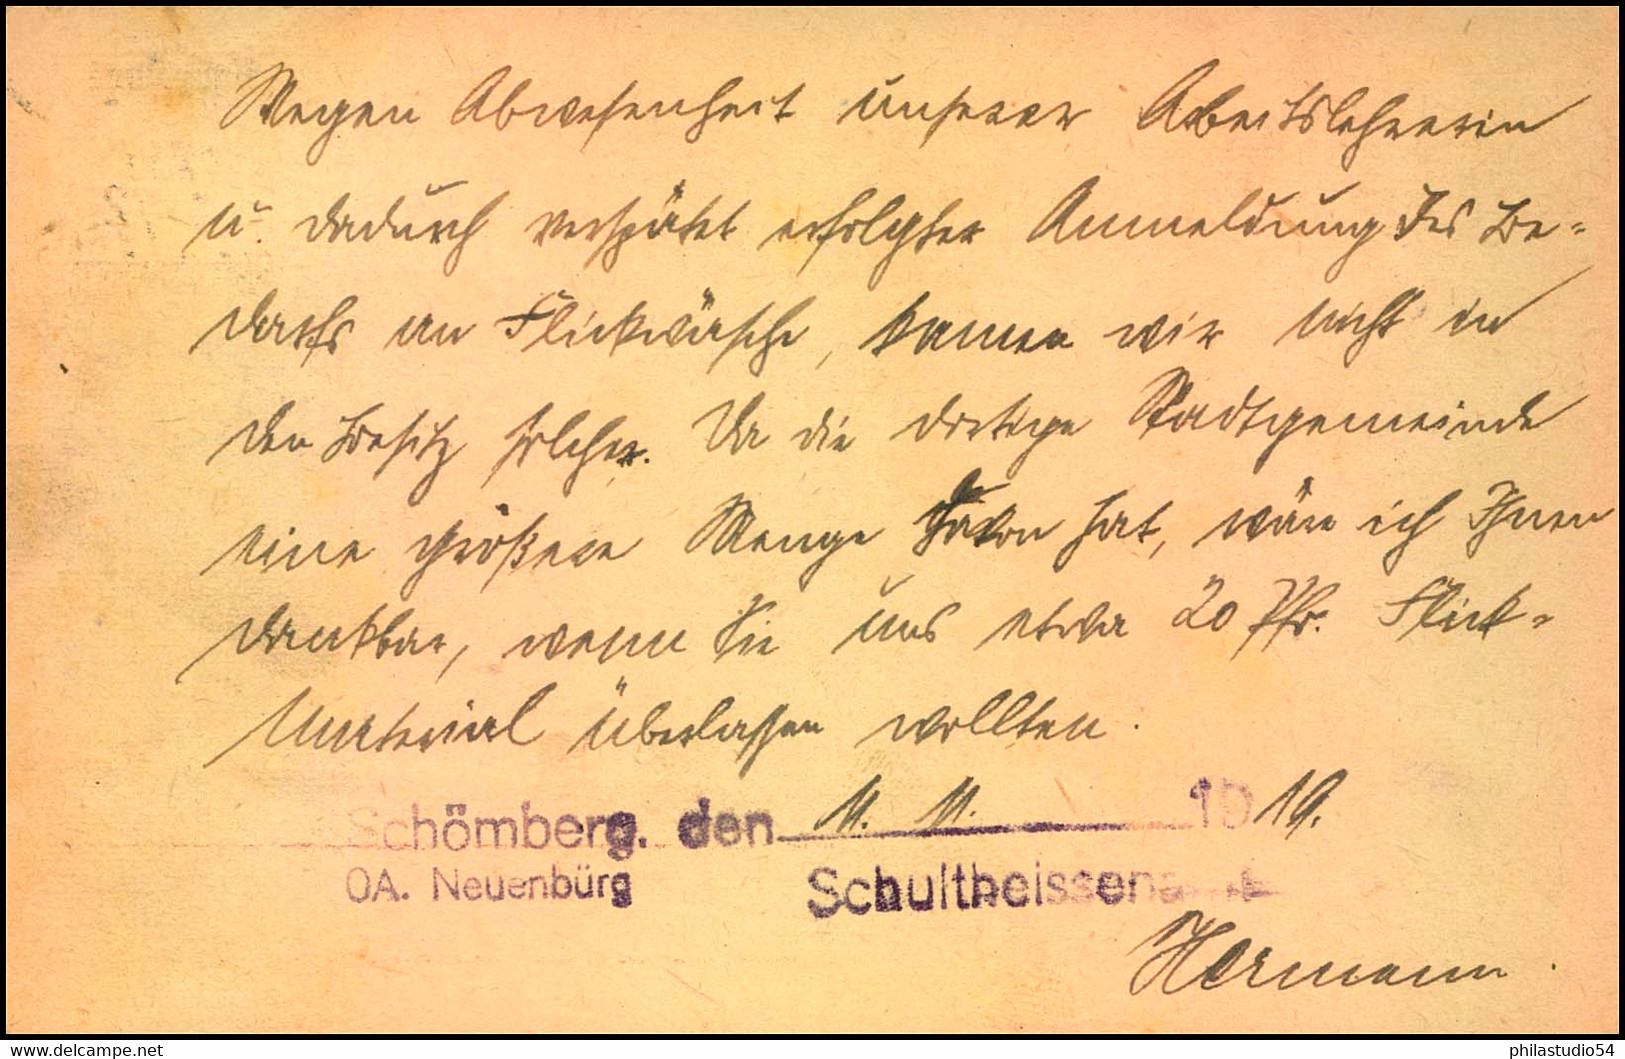 Wegen Abwesenheit unserer Arbeitslehrerin
u. dadurch verspätet erfolgter Anmeldung des Be-
darfs an Flickwäsche, kamen wir nicht in
den Besitz solcher. Da die dortige Stadtgemeinde
eine größere Menge davon hat, wäre ich Ihnen
dankbar, wenn Sie uns etwa 20 Pfr. Flick-
material überlassen wollten.
Schömberg, den 11. 11. 19 19.
OA. Neuenbürg Schultheissenamt
Hermann
www.delcampe.net philastudio54